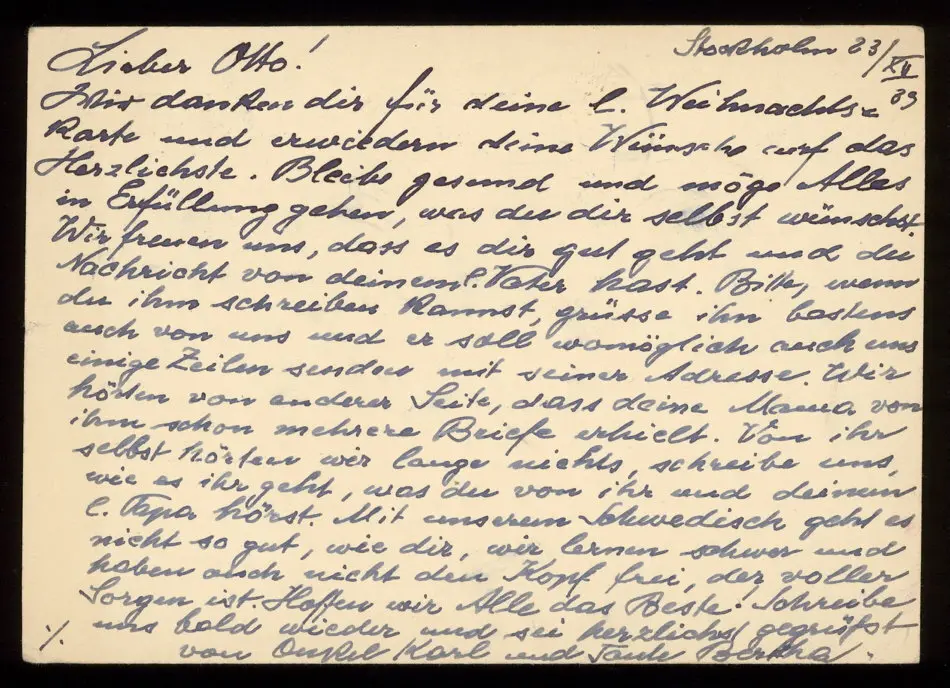 Stockholm 23/XII 39
Lieber Otto!
Wir danken dir für deine l. Weihnachts-
karte und erwiedern deine Wünsche auf das
Herzlichste. Bleibe gesund und möge Alles
in Erfüllung gehen, was du dir selbst wünschst.
Wir freuen uns, dass es dir gut geht und du
Nachricht von deinem l. Vater hast. Bitte, wenn
du ihm schreiben kannst, grüsse ihn bestens
auch von uns und er soll womöglich auch uns
einige Zeilen senden mit seiner Adresse. Wir
hörten von anderer Seite, dass deine Mama von
ihm schon mehrere Briefe erhielt. Von ihr
selbst hörten wir lange nichts, schreibe uns,
wie es ihr geht, was du von ihr und deinem
l. Papa hörst. Mit unserem Schwedisch geht es
nicht so gut, wie dir, wir lernen schwer und
haben auch nicht den Kopf frei, der voller
Sorgen ist. Hoffen wir Alle das Beste! Schreibe
uns bald wieder und sei herzlichst gegrüßt
von Onkel Karl und Tante Bertha.
./.